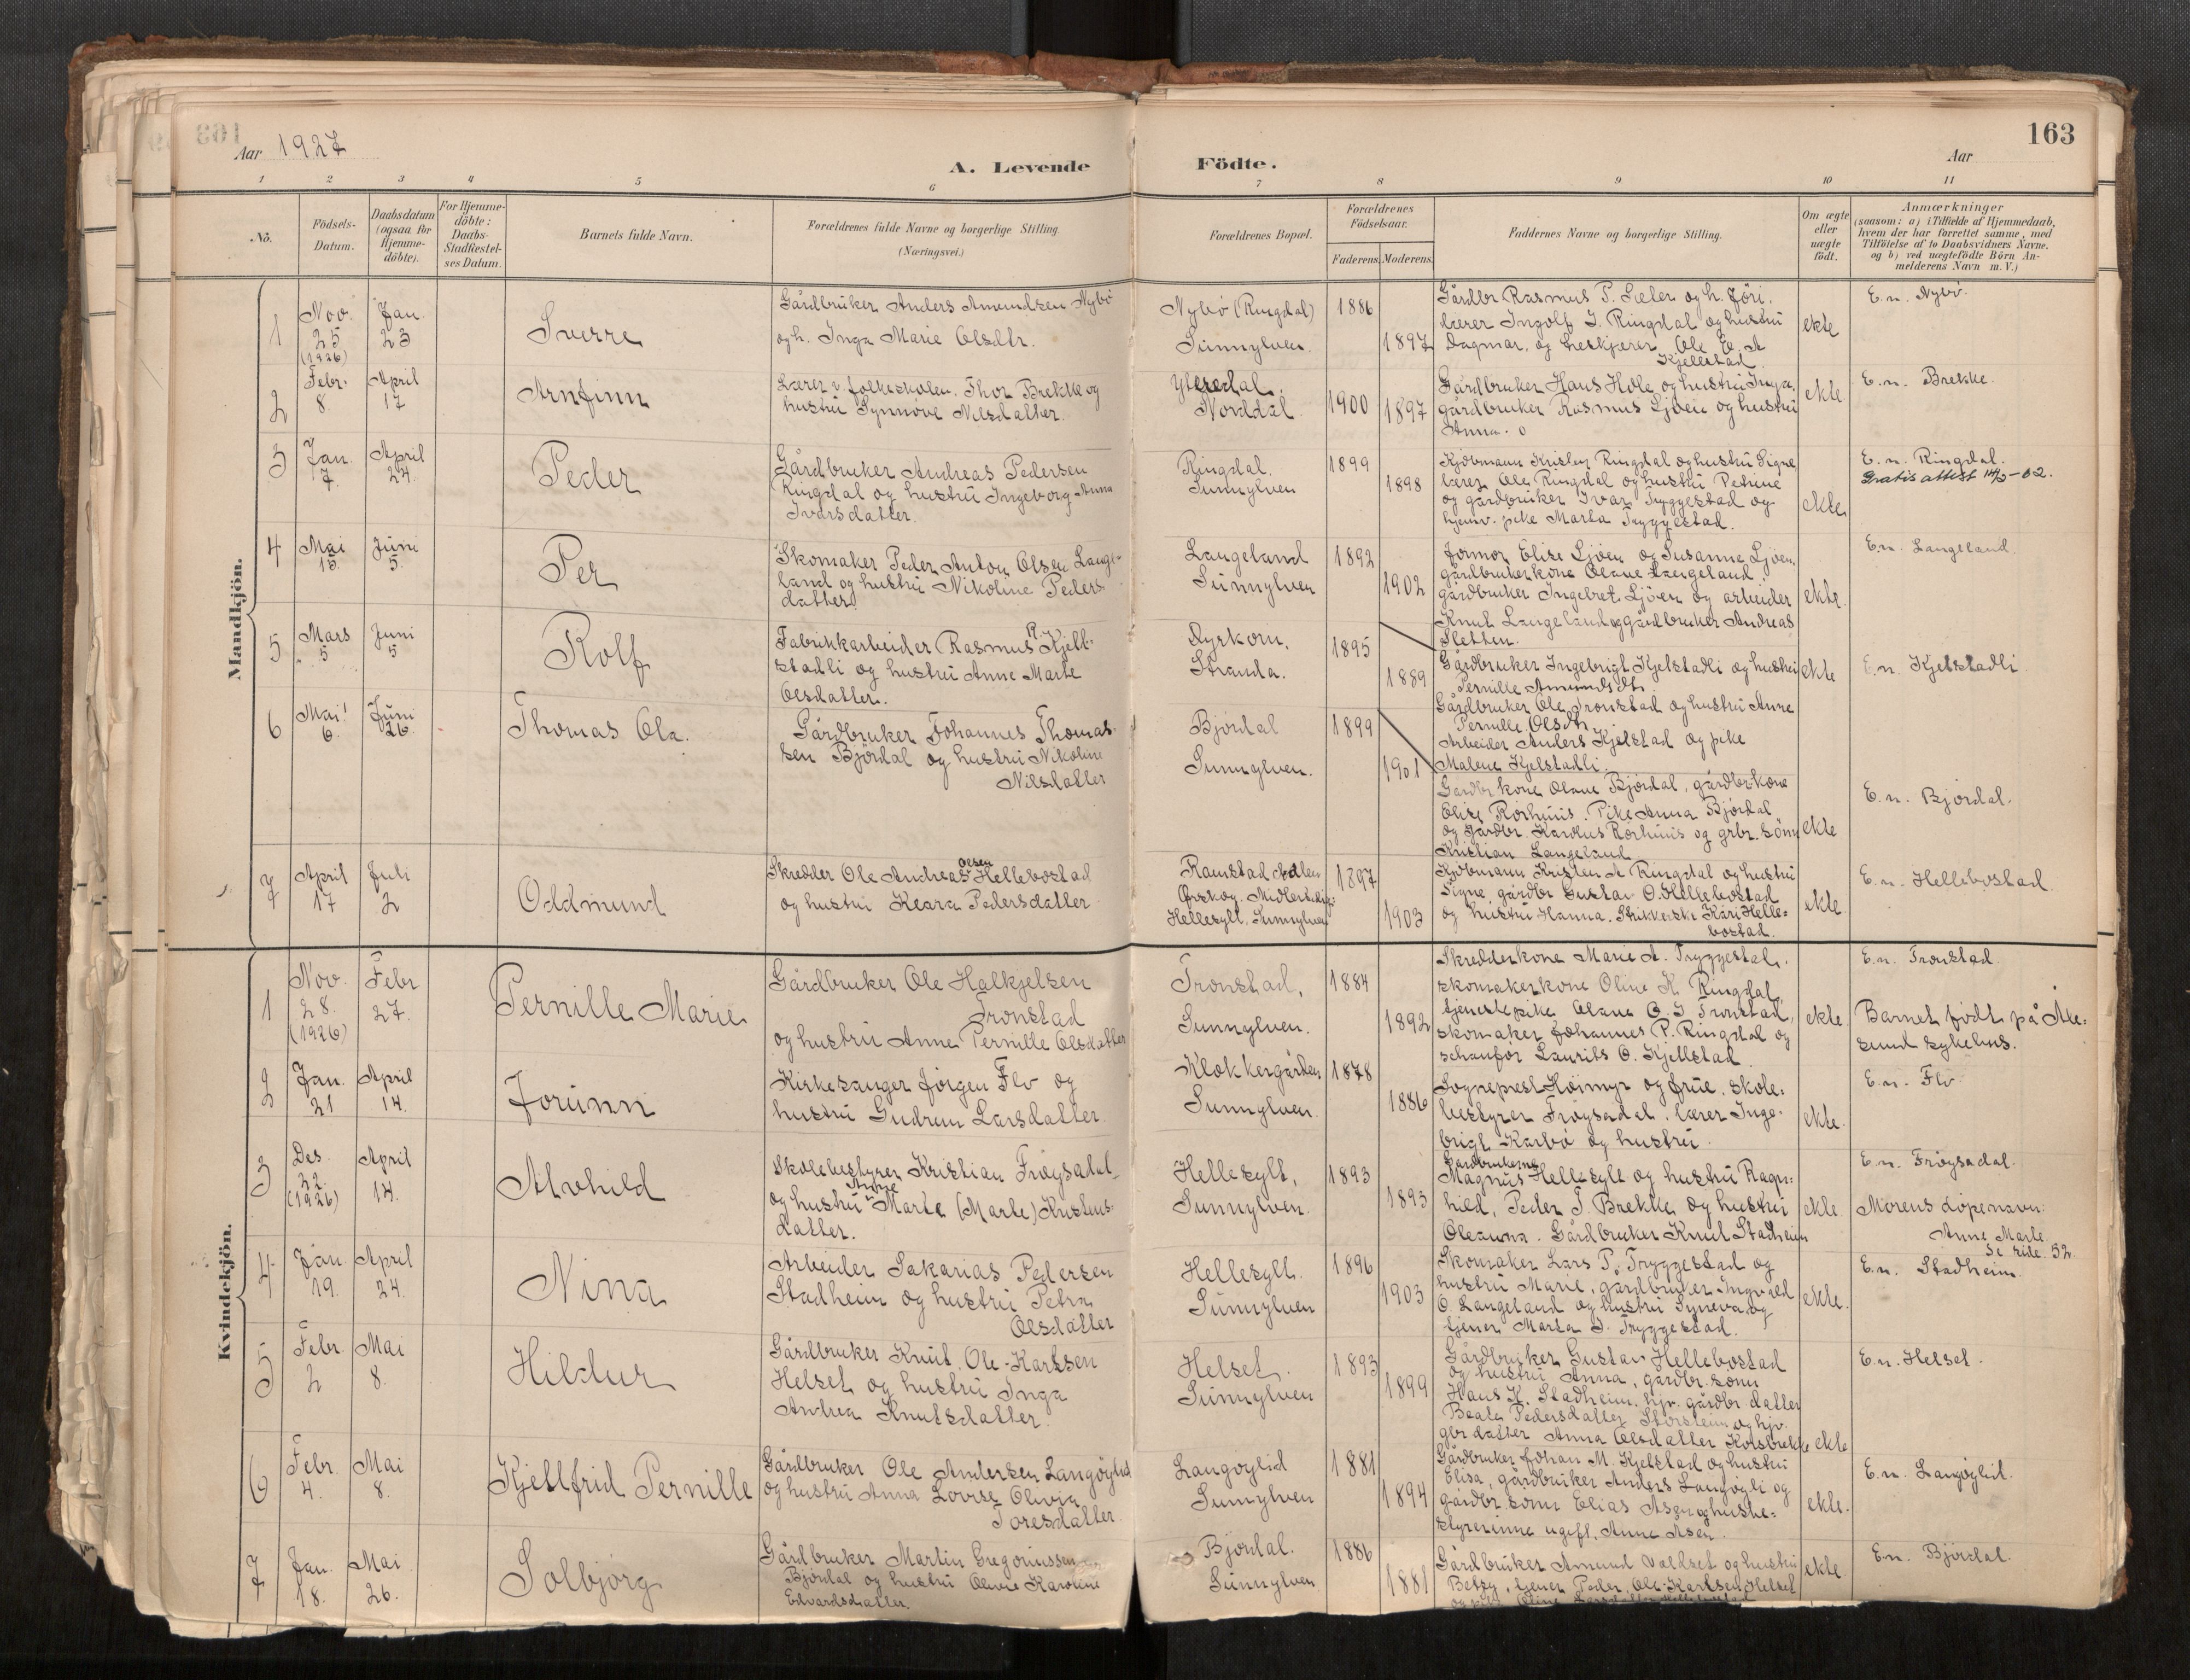 163
Aar 1927
A. Levende Födte.
Aar
1 2 3 4 5 6 7 8 9 10 11
No.
Födsels-
Datum.
Daabsdatum
(ogsaa for
Hjemme-
döbte).
For Hjemme-
döbte:
Daabs-
Stadfestel-
ses Datum.
Barnets fulde Navn.
Forældrenes fulde Navne og borgerlige Stilling.
(Næringsvei.)
Forældrenes Bopæl.
Forældrenes
Födselsaar.
Faderens.
Moderens.
Faddernes Navne og borgerlige Stilling.
Om ægte
eller
uægte
födt.
Anmærkninger
(saasom: a) i Tilfælde af Hjemmedaab,
hvem der har forrettet samme, med
Tilföielse af to Daabsvidners Navne.
og b) ved uægtefödte Börn An-
melderens Navn m. V.)
Mandkjön.
1
Nov.
25
(1926)
Jan.
23
Sverre
Gårdbruker Anders Amundsen Nybö
og h. Inga Marie Olsdtr.
Nybö (Ringdal)
Sunnylven.
1886
1897
Gårdbr. Rasmus P. Sæter og h. Jöri,
lærer Ingolf J. Ringdal og hustru
Dagmar, og Ole E. A
Kjellstad
ekte
E. n. Nybö.
2
Febr.
8.
April
17
Arnfinn
Lærer v. folkeskolen, Thor Brekke og
hustru Synnöve Nilsdatter.
Ytredal,
Norddal
1900
1897
Gårdbruker Hans Hole og hustru Inga,
gårdbruker Rasmus Ljöen og hustru
Anna.
ekte
E. n. Brekke.
3
Jan.
7.
April
24
Peder
Gårdbruker Andreas Pedersen
Ringdal og hustru Ingeborg Anna
Ivarsdatter.
Ringdal.
Sunnylven
1899
1898
Kjöbmann Kristen Ringdal og hustru Signe,
lærer Ole Ringdal og hustru Petrine
og gårdbruker Ivar Tryggestad og
hjemv. pike Marta Tryggestad.
ekte
E. n. Ringdal.
Gratis attest - 62.
4
Mai
15.
Juni
5.
Per
Skomaker Peder Anton Olsen Lange-
land og hustru Nikoline Peders
datter.
Langeland
Sunnylven
1892
1902
Jormor Elise Ljöen og Susanne Ljöen,
gårdbrukerkone Olave Langeland,
gårdbruker Ingebret Ljöen og arbeider
Knut Langeland og gårdbruker Andreas
Sletten.
ekte.
E. n. Langeland.
5
Mars
5
Juni
5
Rolf
Fabrikkarbeider Rasmus R. Kjell-
stadli og hustru Anne Marte
Olsdatter.
Dyrkorn,
Stranda.
1895
1889
Gårdbruker Ingebrigt Kjelstadli og hustru
Pernille Amundsdtr.
Gårdbruker Ole Tronstad og hustru Anne
Pernille Olsdtr.
Arbeider Anders Kjelstad og pike
Malene Kjelstadli.
ekte
E. n. Kjelstadli
6
Mai
6.
Juni
26
Thomas Ola.
Gårdbruker Johannes Thomas-
sen Björdal og hustru Nikoline
Nilsdatter
Björdal
Sunnylven.
1899
1901
Gårdbr.kone Olave Björdal, gårdbr.kone
Elise Rörhuus. Pike Anna Björdal
og gårdbr. Karolus Rörhuus og grbr. sönn
Kristian Langeland
ekte
E. n. Björdal.
7
April
17
Juli
2
Oddmund
Skredder Ole Andreas Olsen Hellebostad
og hustru Klara Pedersdatter
Ramstad
Örskog.
Hellesylt, Sunnylven
1897
1903
Kjöbmann Kristen A. Ringdal og hustru
Signe, gårdbr. Gustav O. Hellebostad
og hustru Hanna. Kari Helle-
bostad.
ekte.
E. n. Hellebostad.
Kvindekjön.
1
Nov.
28.
(1926)
Febr
27.
Pernille Marie
Gårdbruker Ole Halkjelsen
Tronstad
og hustru Anne Pernille Olsdatter
Tronstad,
Sunnylven.
1884
1892
Skredderkone Marie A. Tryggestad,
skomakerkone Oline K. Ringdal,
tjenestepike Olave O. J. Tronstad,
skomaker Johannes P. Ringdal og
schauför Laurits O. Kjellstad
ekte.
E. n. Tronstad.
Barnet födt på Åle-
sund sykehus.
2
Jan.
21
April
14.
Jorunn
Kirkesanger Jörgen Flö og
hustru Gudrun Larsdatter.
Klokkergården
Sunnylven.
1878
1886
Sogneprest Höimyr og frue, skole-
bestyrer Fröysadal, lærer Inge-
brigt Karbö og hustru.
ekte.
E. n. Flö
3
Des.
22.
(1926)
April
14.
Alvhild
Skolebestyrer Kristian Fröysadal
og hustru Anne Marta (Marte) Knutsens-
datter.
Hellesylt,
Sunnylven.
1893
1893
Gårdbrukerne
Magnus Hellesylt og hustru Ragn-
hild, Peder J. Brekke og hustru
Oleanna. Gårdbruker Knut Stadheim
ekte.
E. n. Fröysadal.
Morens döpenavn:
Anne Marte.
Se side. 52.
4
Jan.
19.
April
24.
Nina
Arbeider Sakarias Pedersen
Stadheim og hustru Petra
Olsdatter
Hellesylt.
Sunnylven
1896
1903
Skomaker Lars P. Tryggestad og
hustru Marie, gårdbruker Ingvald
O. Langeland og hustru Synneva og
tjener Marta J. Tryggestad.
ekte.
E. n. Stadheim.
5
Febr.
2
Mai
8.
Hildur
Gårdbruker Knut Ole-Karlsen
Helset og hustru Inga
Andrea Knutsdatter.
Helset.
Sunnylven
1893
1899
Gårdbruker Gustav Hellebostad
og hustru Anna, gårdbr. sönn
Hans K. Stadheim, hjv. gårdbr datter
Beate Pedersdatter Storseim og hjv.
gbr datter Anna Olsdatter Korsbrekke
ekte
E. n. Helset.
6
Febr.
4.
Mai
8.
Kjellfrid Pernille
Gårdbruker Ole Andersen Langöylid
og hustru Anna Lovise Olivia
Toresdatter.
Langöylid
Sunnylven
1881
1894
Gårdbruker Johan M. Kjelstad og hustru
Elisa, gårdbruker Anders Langöyli og
gårdbr. sönn Elias Åsen og hushe-
styrerinne ugift, Anne Åsen.
ekte.
E. n. Langöylid.
7
Jan.
18.
Mai
26.
Solbjörg
Gårdbruker Martin Gregoriussen
Björdal og hustru Olivie Karoline
Edvardsdatter.
Björdal.
Sunnylven
1886
1881
Gårdbruker Amund Valdset og hustru
Betzy, tjener Peder Ole-Karlsen Helset
og pike Oline Larsdatter Hellebostad
ekte
E. n. Björdal.